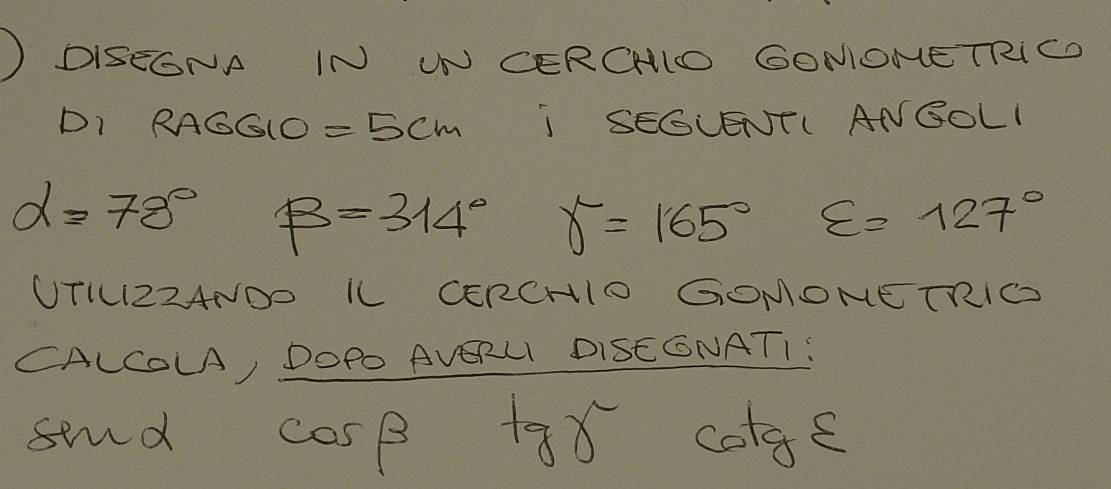 ) DISEGNA IN UN CERCHIO GONIOMETRICO
DI RAGGIO = 5cm i SEGUENTI ANGOLI
α = 78° β = 314° γ = 165° ε = 127°
UTILIZZANDO IL CERCHIO GONIOMETRICO
CALCOLA, DOPO AVERLI DISEGNATI:
sen α cos β tg γ cotg ε